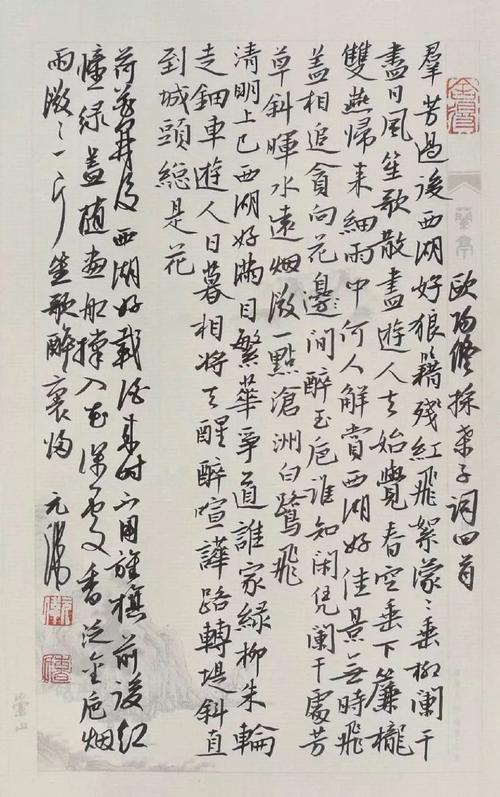 歐陽修採桑子詞四首
羣芳過後西湖好狼籍殘紅飛絮濛〻垂柳闌干
盡日風笙歌散盡遊人去始覺春空垂下簾櫳
雙燕歸來細雨中何人解賞西湖好佳景無時飛
蓋相追貪向花邊間醉玉卮誰知闲凭闌干處芳
草斜暉水遠烟微一點滄洲白鷺飛
清明上巳西湖好滿目繁華爭道誰家綠柳朱輪
走鈿車遊人日暮相將去醒醉喧譁路轉堤斜直
到城頭總是花
荷花開後西湖好載酒來時不用旌旗前後紅
幢綠蓋隨畫船撐入花深處香泛金卮烟
雨微〻一片笙歌醉裏歸 元
蘭亭